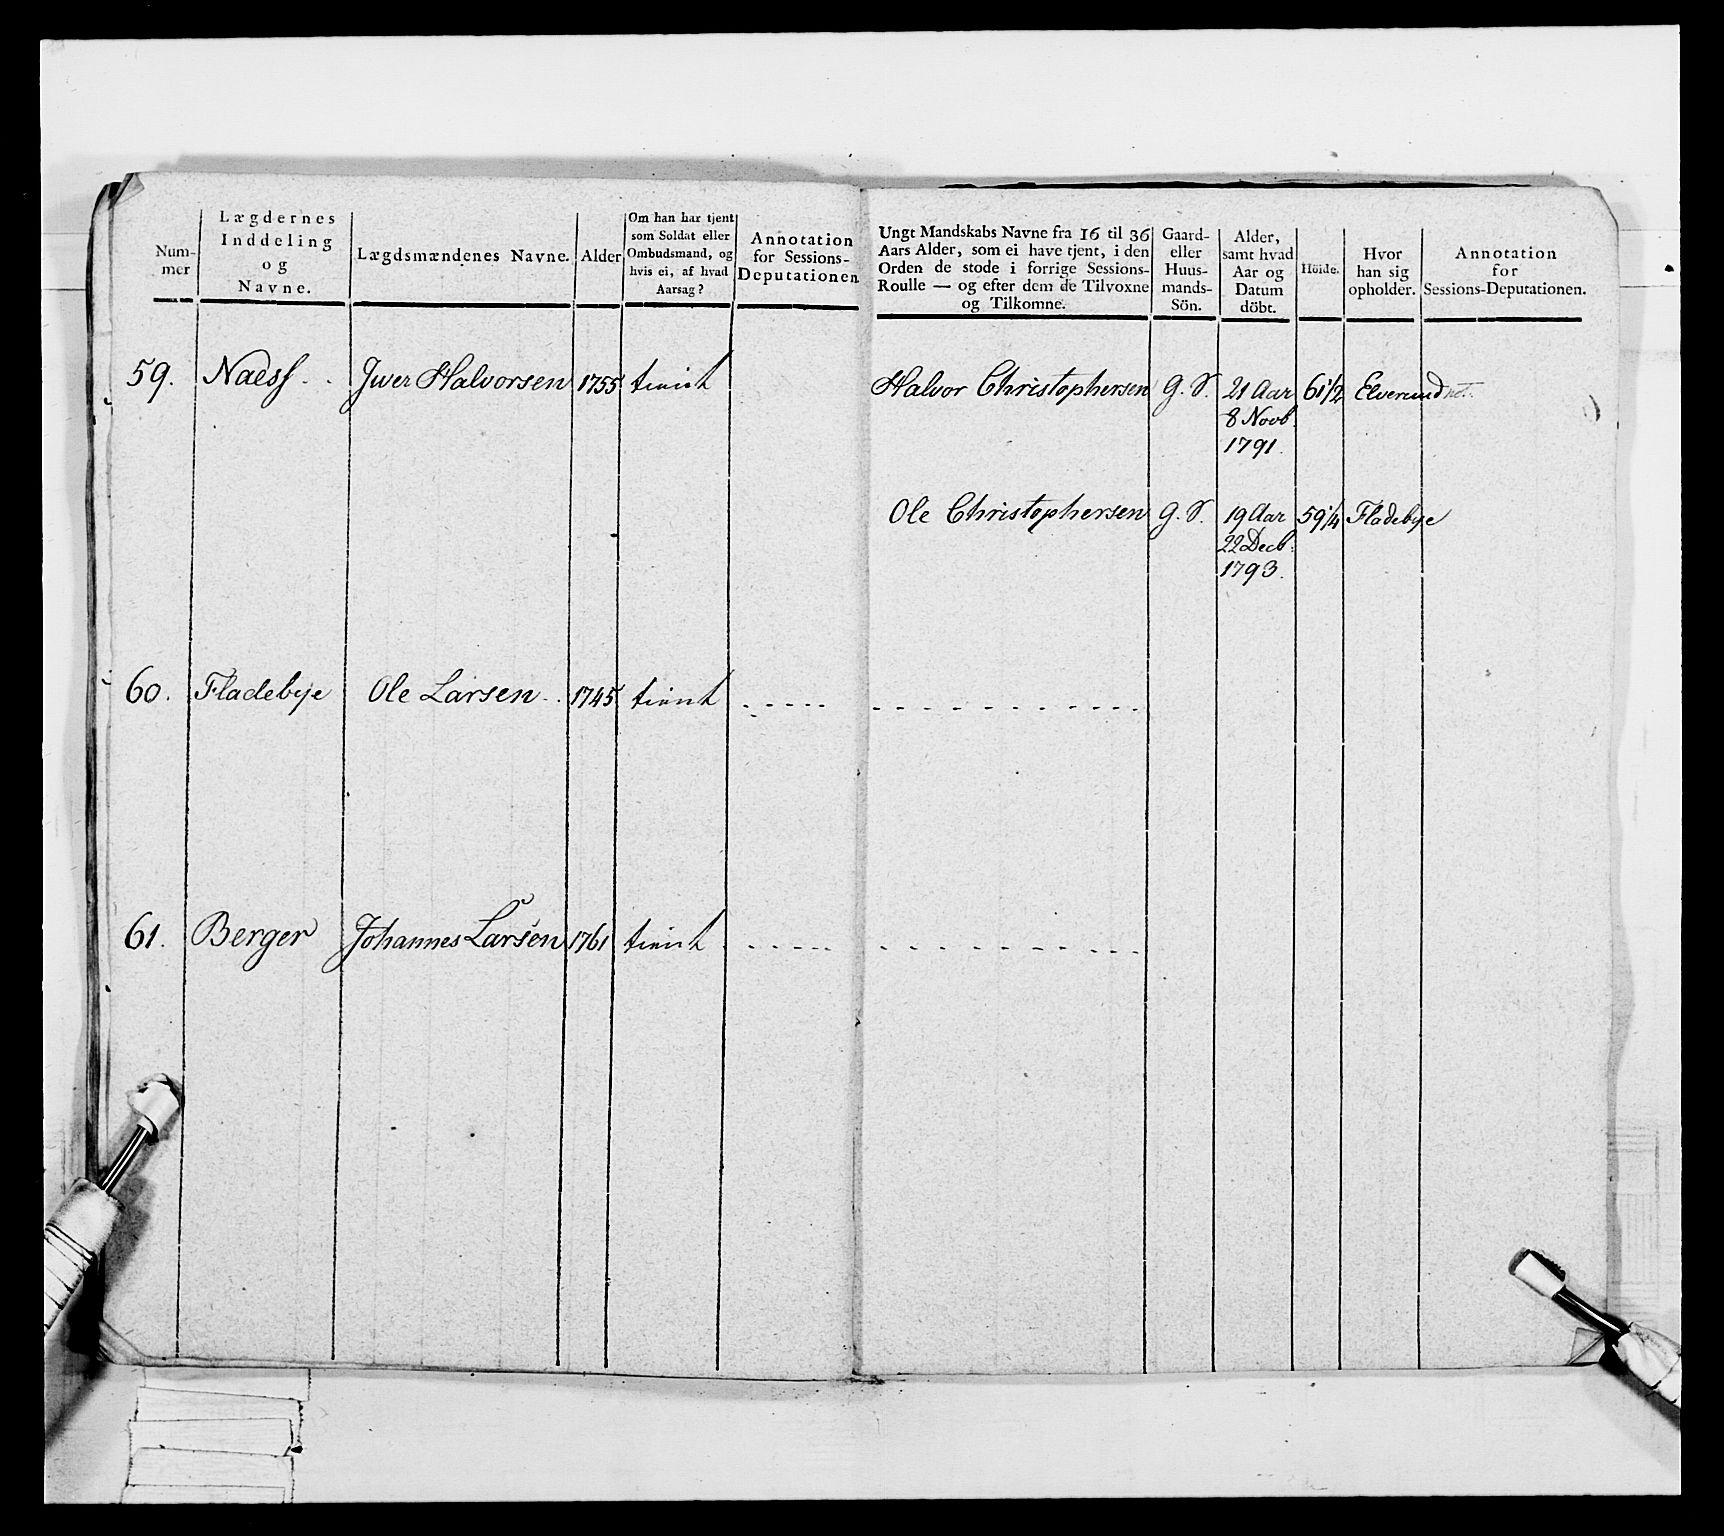 Num-
mer
Lægdernes
Inddeling
og
Navne.
Lægdsmændenes Navne.
Alder
Om han har tjent
som Soldat eller
Ombudsmand, og
hvis ei, af hvad
Aarsag?
Annotation
for Sessions-
Deputationen
Ungt Mandskabs Navne fra 16 til 36
Aars Alder, som ei have tjent, i den
Orden de stode i forrige Sessions-
Roulle — og efter dem de Tilvoxne
og Tilkomne.
Gaard-
eller
Huus-
mands-
Sön.
Alder,
samt hvad
Aar og
Datum
döbt.
Höide.
Hvor
han sig
opholder.
Annotation
for
Sessions-Deputationen.
59. Naess Jwer Halvorsen 1755 tient Halvor Christophersen G. S. 21 Aar 61 1/2 Elverum
8 Novb.
1791.
Ole Christophersen G. S. 19 Aar 59 1/4 Fladebye
22 Decb:
1793.
60. Fladebye Ole Larsen 1745 tient
61. Berger Johannes Larsen 1761 tient